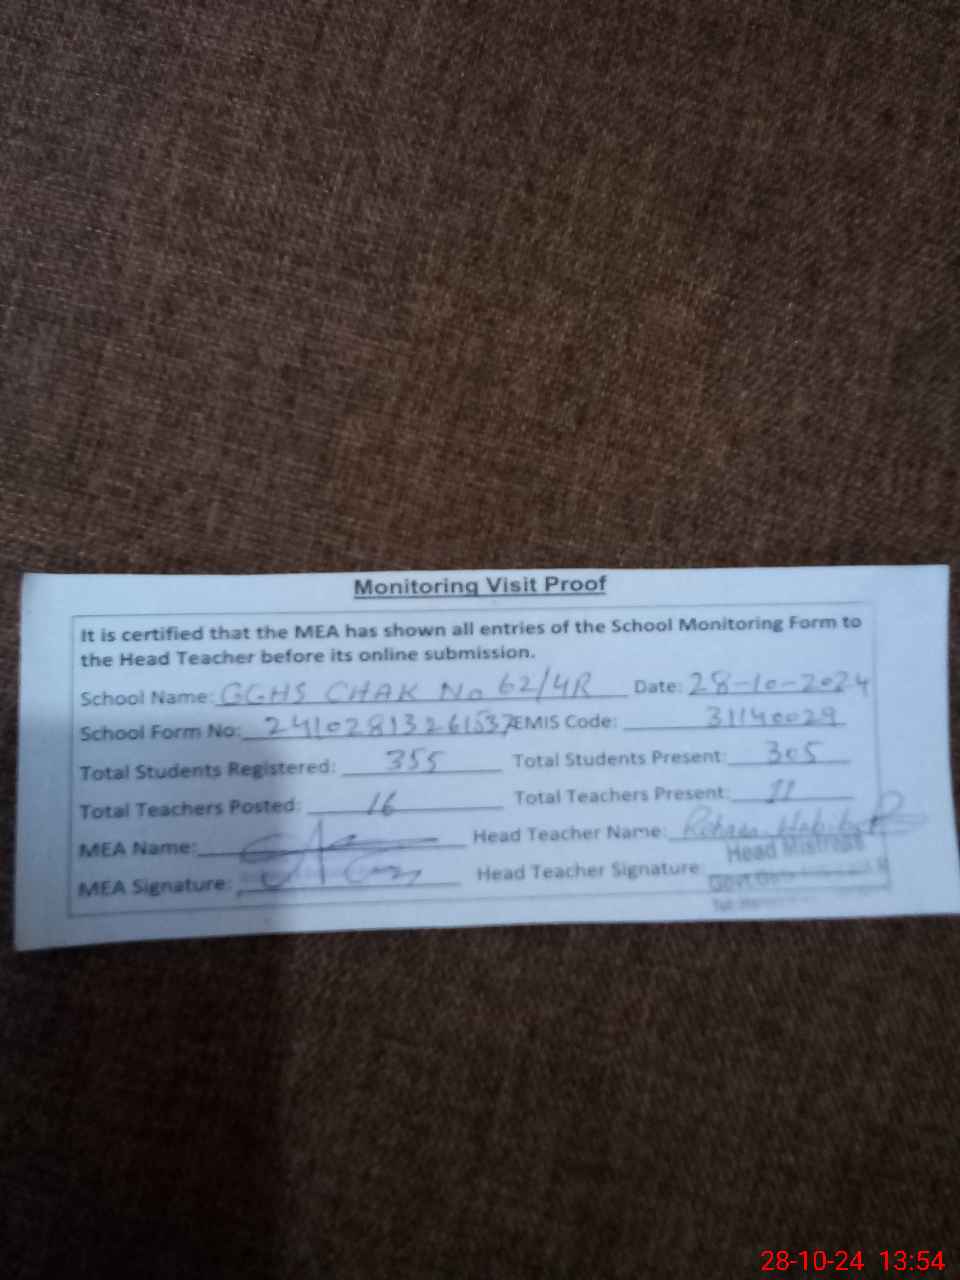 Monitoring Visit Proof
It is certified that the MEA has shown all entries of the School Monitoring Form to
the Head Teacher before its online submission.
School Name: GGHS CHAK No 62/4R Date: 28-10-2024
School Form No: 24102813261537 EMIS Code: 31140029
Total Students Registered: 355 Total Students Present: 305
Total Teachers Posted: 16 Total Teachers Present: 11
MEA Name: Head Teacher Name:
Head Mistress
MEA Signature: Head Teacher Signature:
Govt
28-10-24 13:54